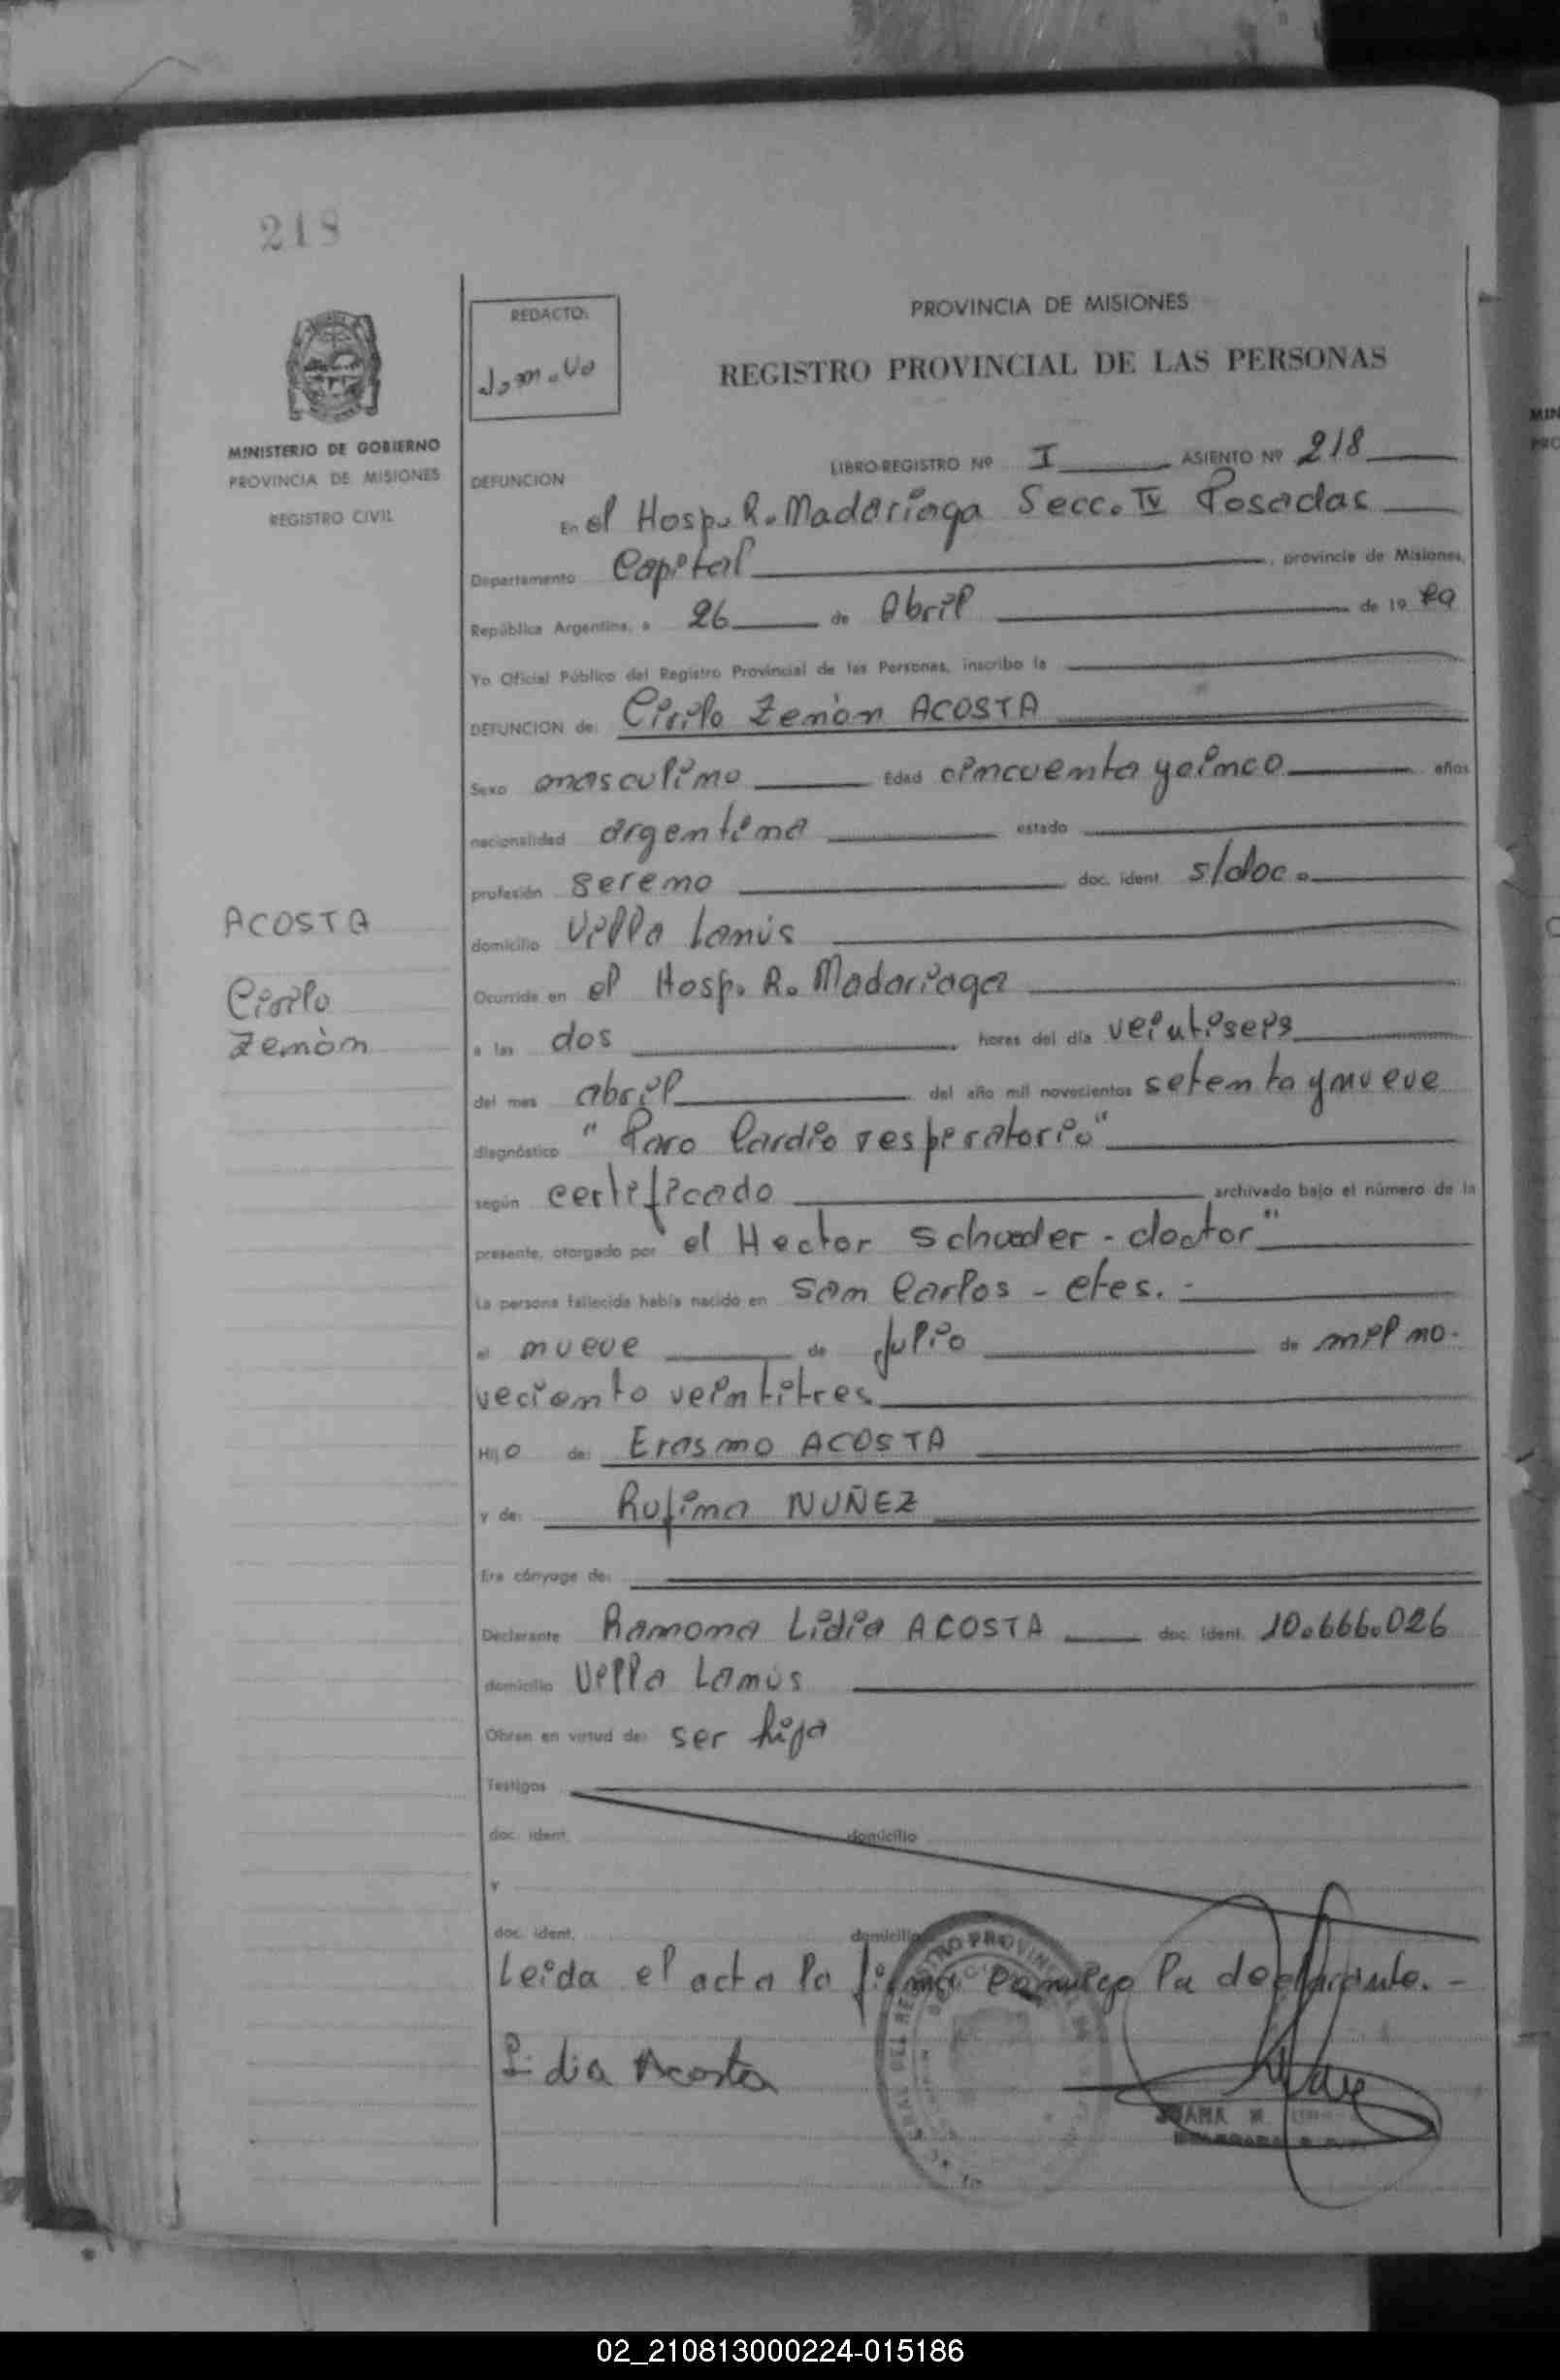 218
REDACTO:
PROVINCIA DE MISIONES
REGISTRO PROVINCIAL DE LAS PERSONAS
MINISTERIO DE GOBIERNO
PROVINCIA DE MISIONES
REGISTRO CIVIL
LIBRO-REGISTRO Nº I ASIENTO Nº 218
DEFUNCION
En el Hosp. R. Madariaga Secc. IV Posadas
Departamento Capital, provincia de Misiones,
República Argentina, a 26 de Abril de 19 79
Yo Oficial Público del Registro Provincial de las Personas, inscribo la
DEFUNCION de: Cirilo Zenòn ACOSTA
Sexo masculino Edad cincuenta y cinco años
nacionalidad argentina estado
profesión sereno doc. ident. s/doc.
domicilio Villa Lanús
Ocurrida en el Hosp. R. Madariaga
a las dos horas del día veintiseis
del mes abril del año mil novecientos setenta y nueve
diagnóstico "Paro Cardio respiratorio"
según certificado archivado bajo el número de la
presente, otorgado por "el Hector - doctor"
La persona fallecida había nacido en San Carlos - ctes. -
el nueve de Julio de mil no-
veciento veintitres
Hijo de: Erasmo ACOSTA
y de: Rufina NUÑEZ
Era cónyuge de:
Declarante Ramona Lidia ACOSTA doc. ident. 10.666.026
domicilio Villa Lanùs
Obran en virtud de: ser hija
Testigos
doc. ident. domicilio
y
doc. ident. domicilio
Leida el acta la firma conmigo la declarante. -
Lidia Acosta
JUANA M.
ACOSTA
Cirilo
Zenòn
02_210813000224-015186